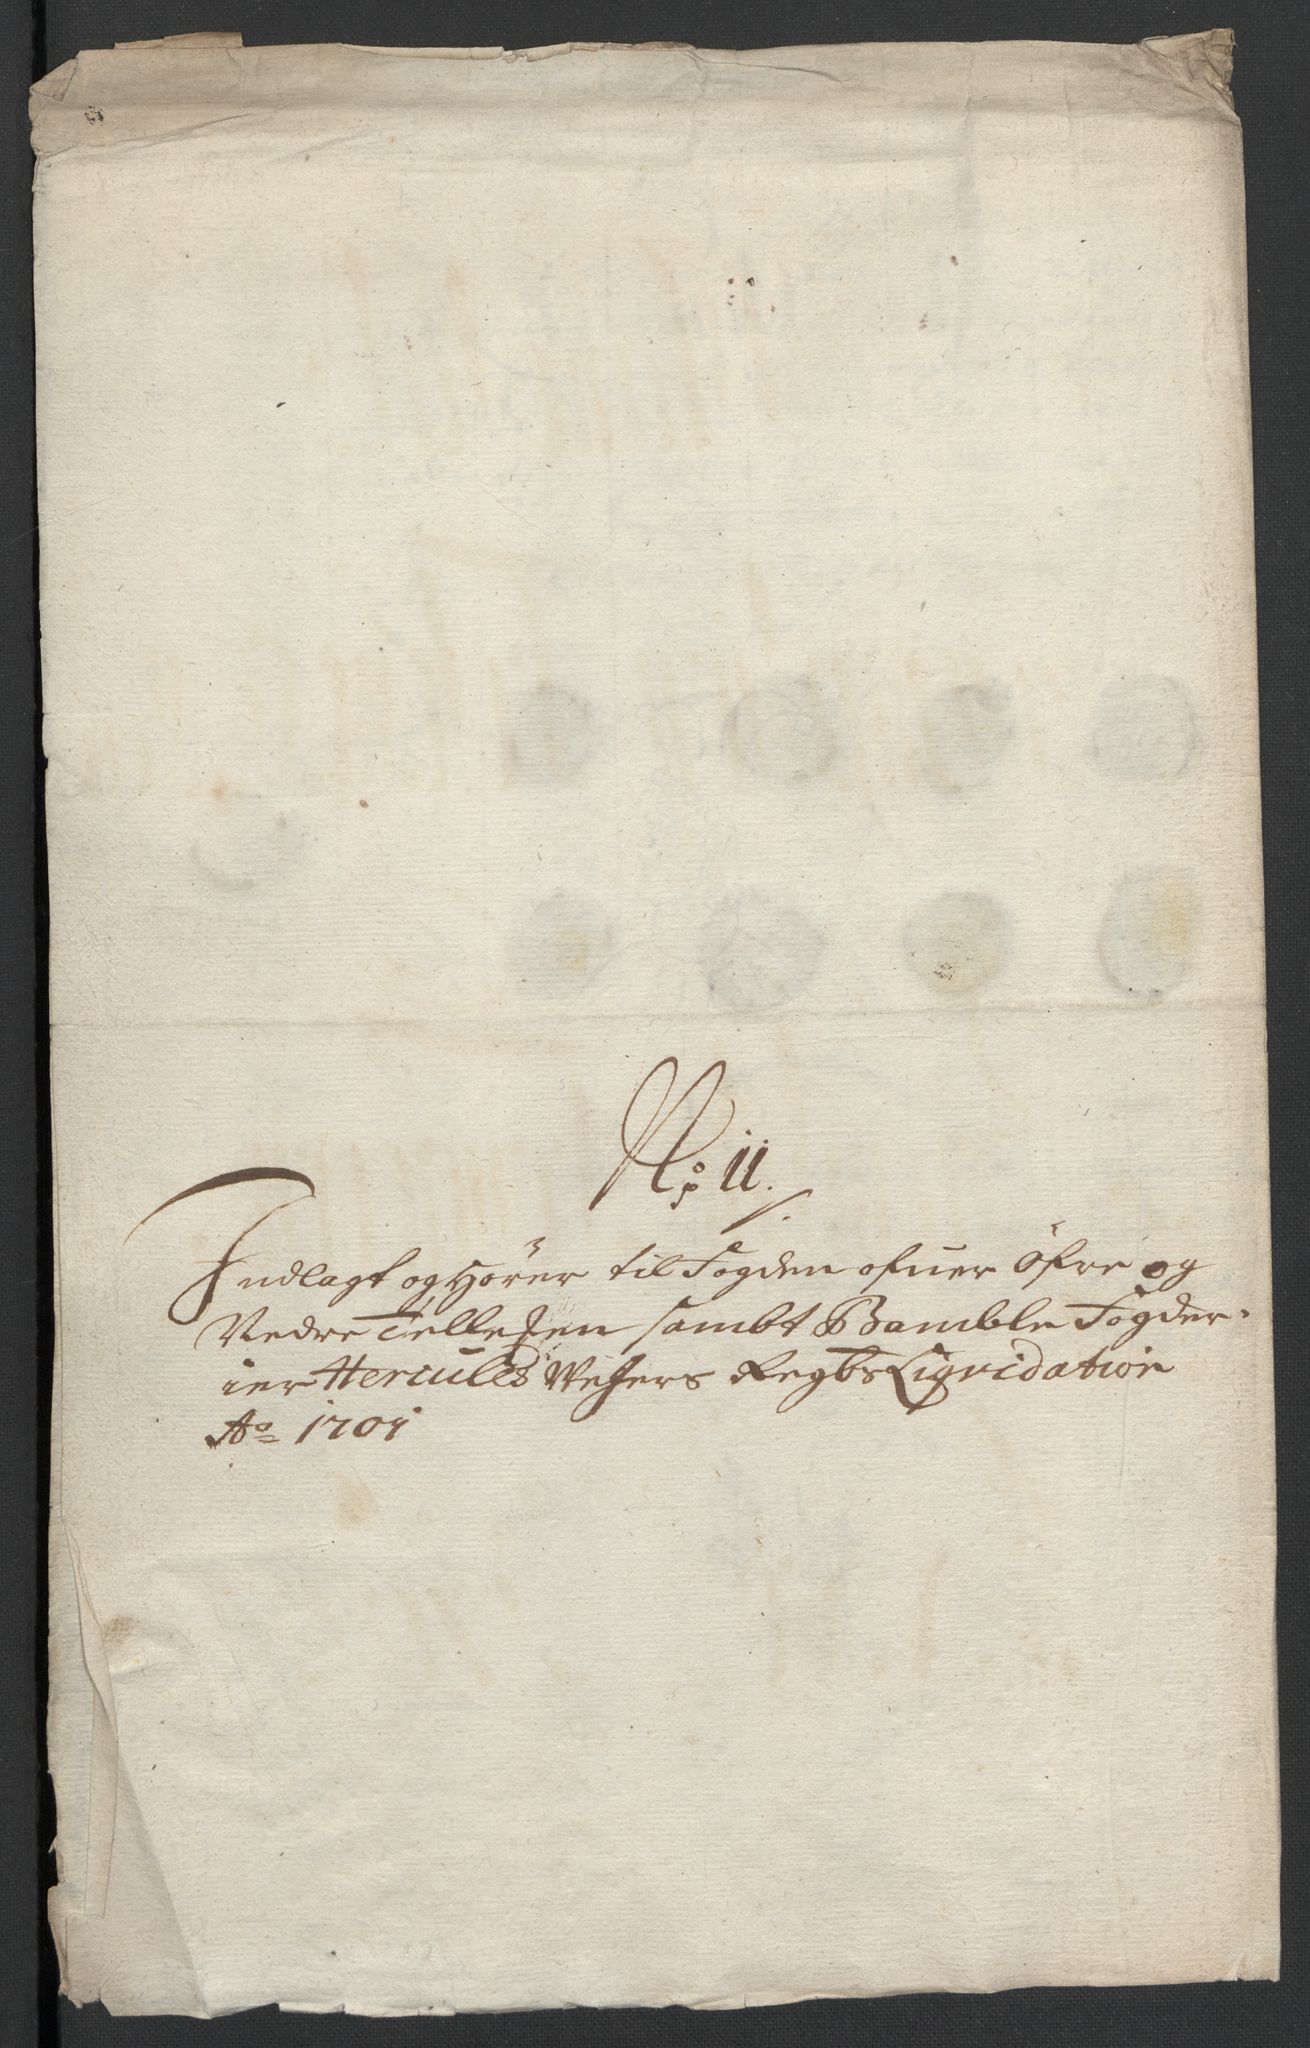 No: 11.
Indlagt og Hörer til Fogden ofuer Öfre og
Nedre Tellemen sambt Bamble Fogder-
ier Hercules Weÿers Regbs Liqvidation
Ao 1701